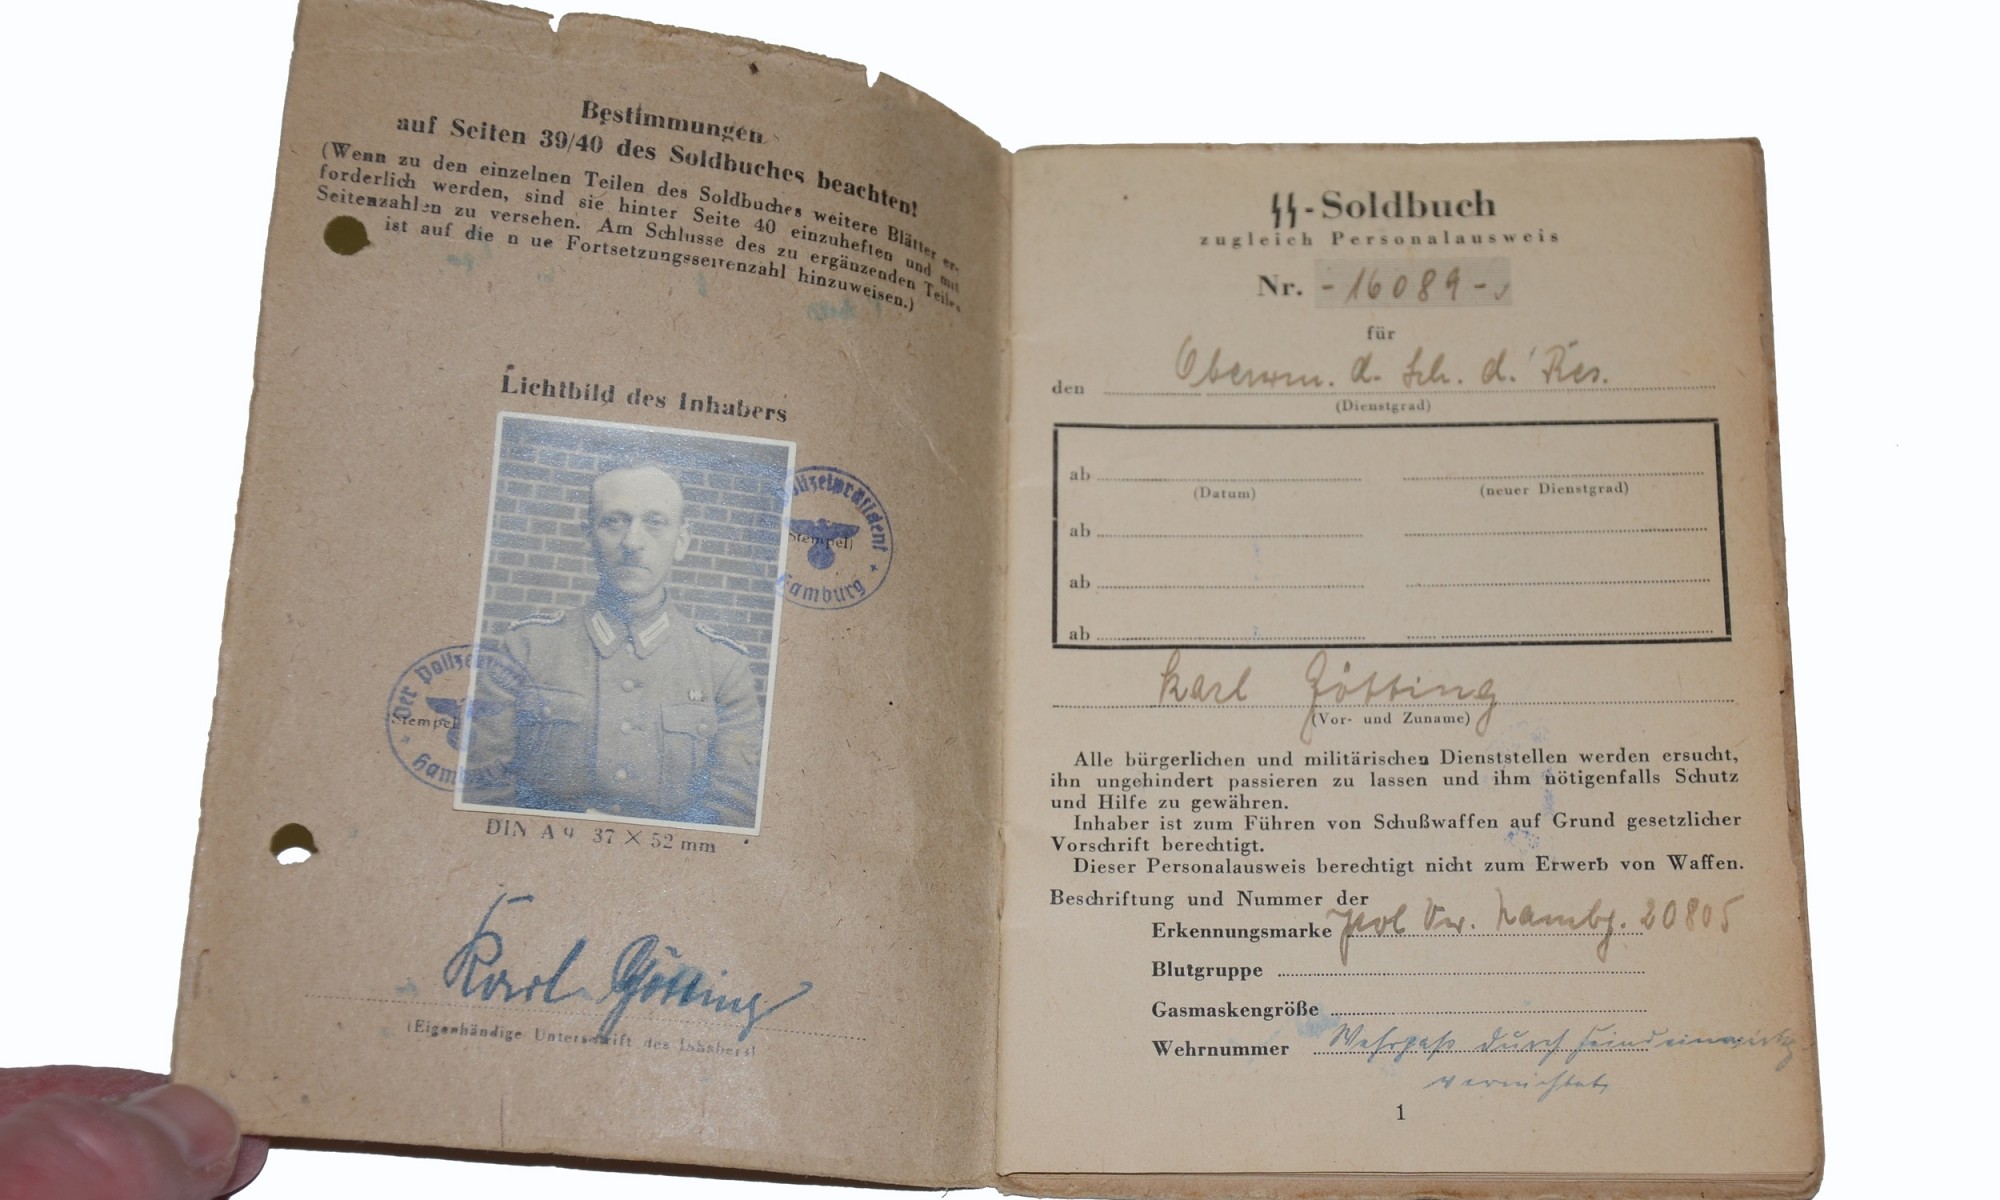 Bestimmungen
auf Seiten 39/40 des Soldbuches beachten!
(Wenn zu den einzelnen Teilen des Soldbuches weitere Blätter er-
forderlich werden, sind sie hinter Seite 40 einzuheften und mit
Seitenzahlen zu versehen. Am Schlusse des zu ergänzenden Teiles
ist auf die n ue Fortsetzungsseitenzahl hinzuweisen.)
Lichtbild des Inhabers
Polizeipräsident
(Stempel)
Hamburg
Der Polizeipräsident
(Stempel)
Hamburg
DIN A 9 37 × 52 mm
Karl Götting
(Eigenhändige Unterschrift des Inhabers)
ᛋᛋ-Soldbuch
zugleich Personalausweis
Nr. -16089-
für
den Oberwm. d. Sch. d. Res.
(Dienstgrad)
ab
(Datum) (neuer Dienstgrad)
ab
ab
ab
Karl Götting
(Vor- und Zuname)
Alle bürgerlichen und militärischen Dienststellen werden ersucht,
ihn ungehindert passieren zu lassen und ihm nötigenfalls Schutz
und Hilfe zu gewähren.
Inhaber ist zum Führen von Schußwaffen auf Grund gesetzlicher
Vorschrift berechtigt.
Dieser Personalausweis berechtigt nicht zum Erwerb von Waffen.
Beschriftung und Nummer der
Erkennungsmarke Pol Vw. Hambg. 20805
Blutgruppe
Gasmaskengröße
Wehrnummer Wehrpaß durch Feindeinwirkg
vernichtet
1